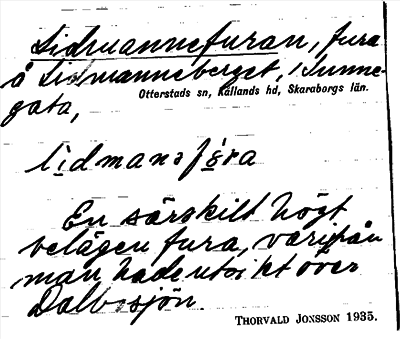 Lidmannefuran, fura
å Lidmanneberget, i Sunne-
gata,
Otterstads sn, Kållands hd, Skaraborgs län.
lidmanəfɷ́ra
En särskilt högt
belägen fura, varifrån
man hade utsikt över
Dalbosjön.
THORVALD JONSSON 1935.